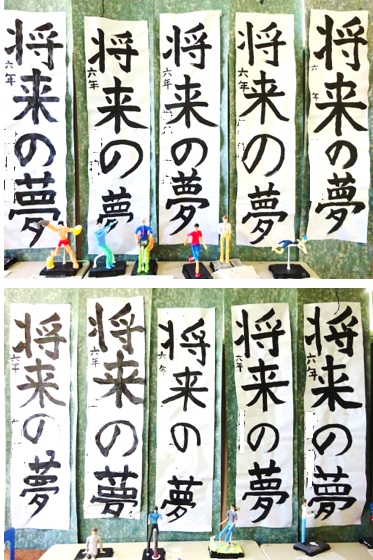 将来の夢
六年
将来の夢
六年
将来の夢
六年
将来の夢
六年
将来の夢
六年
将来の夢
六年
将来の夢
六年
将来の夢
六年
将来の夢
六年
将来の夢
六年